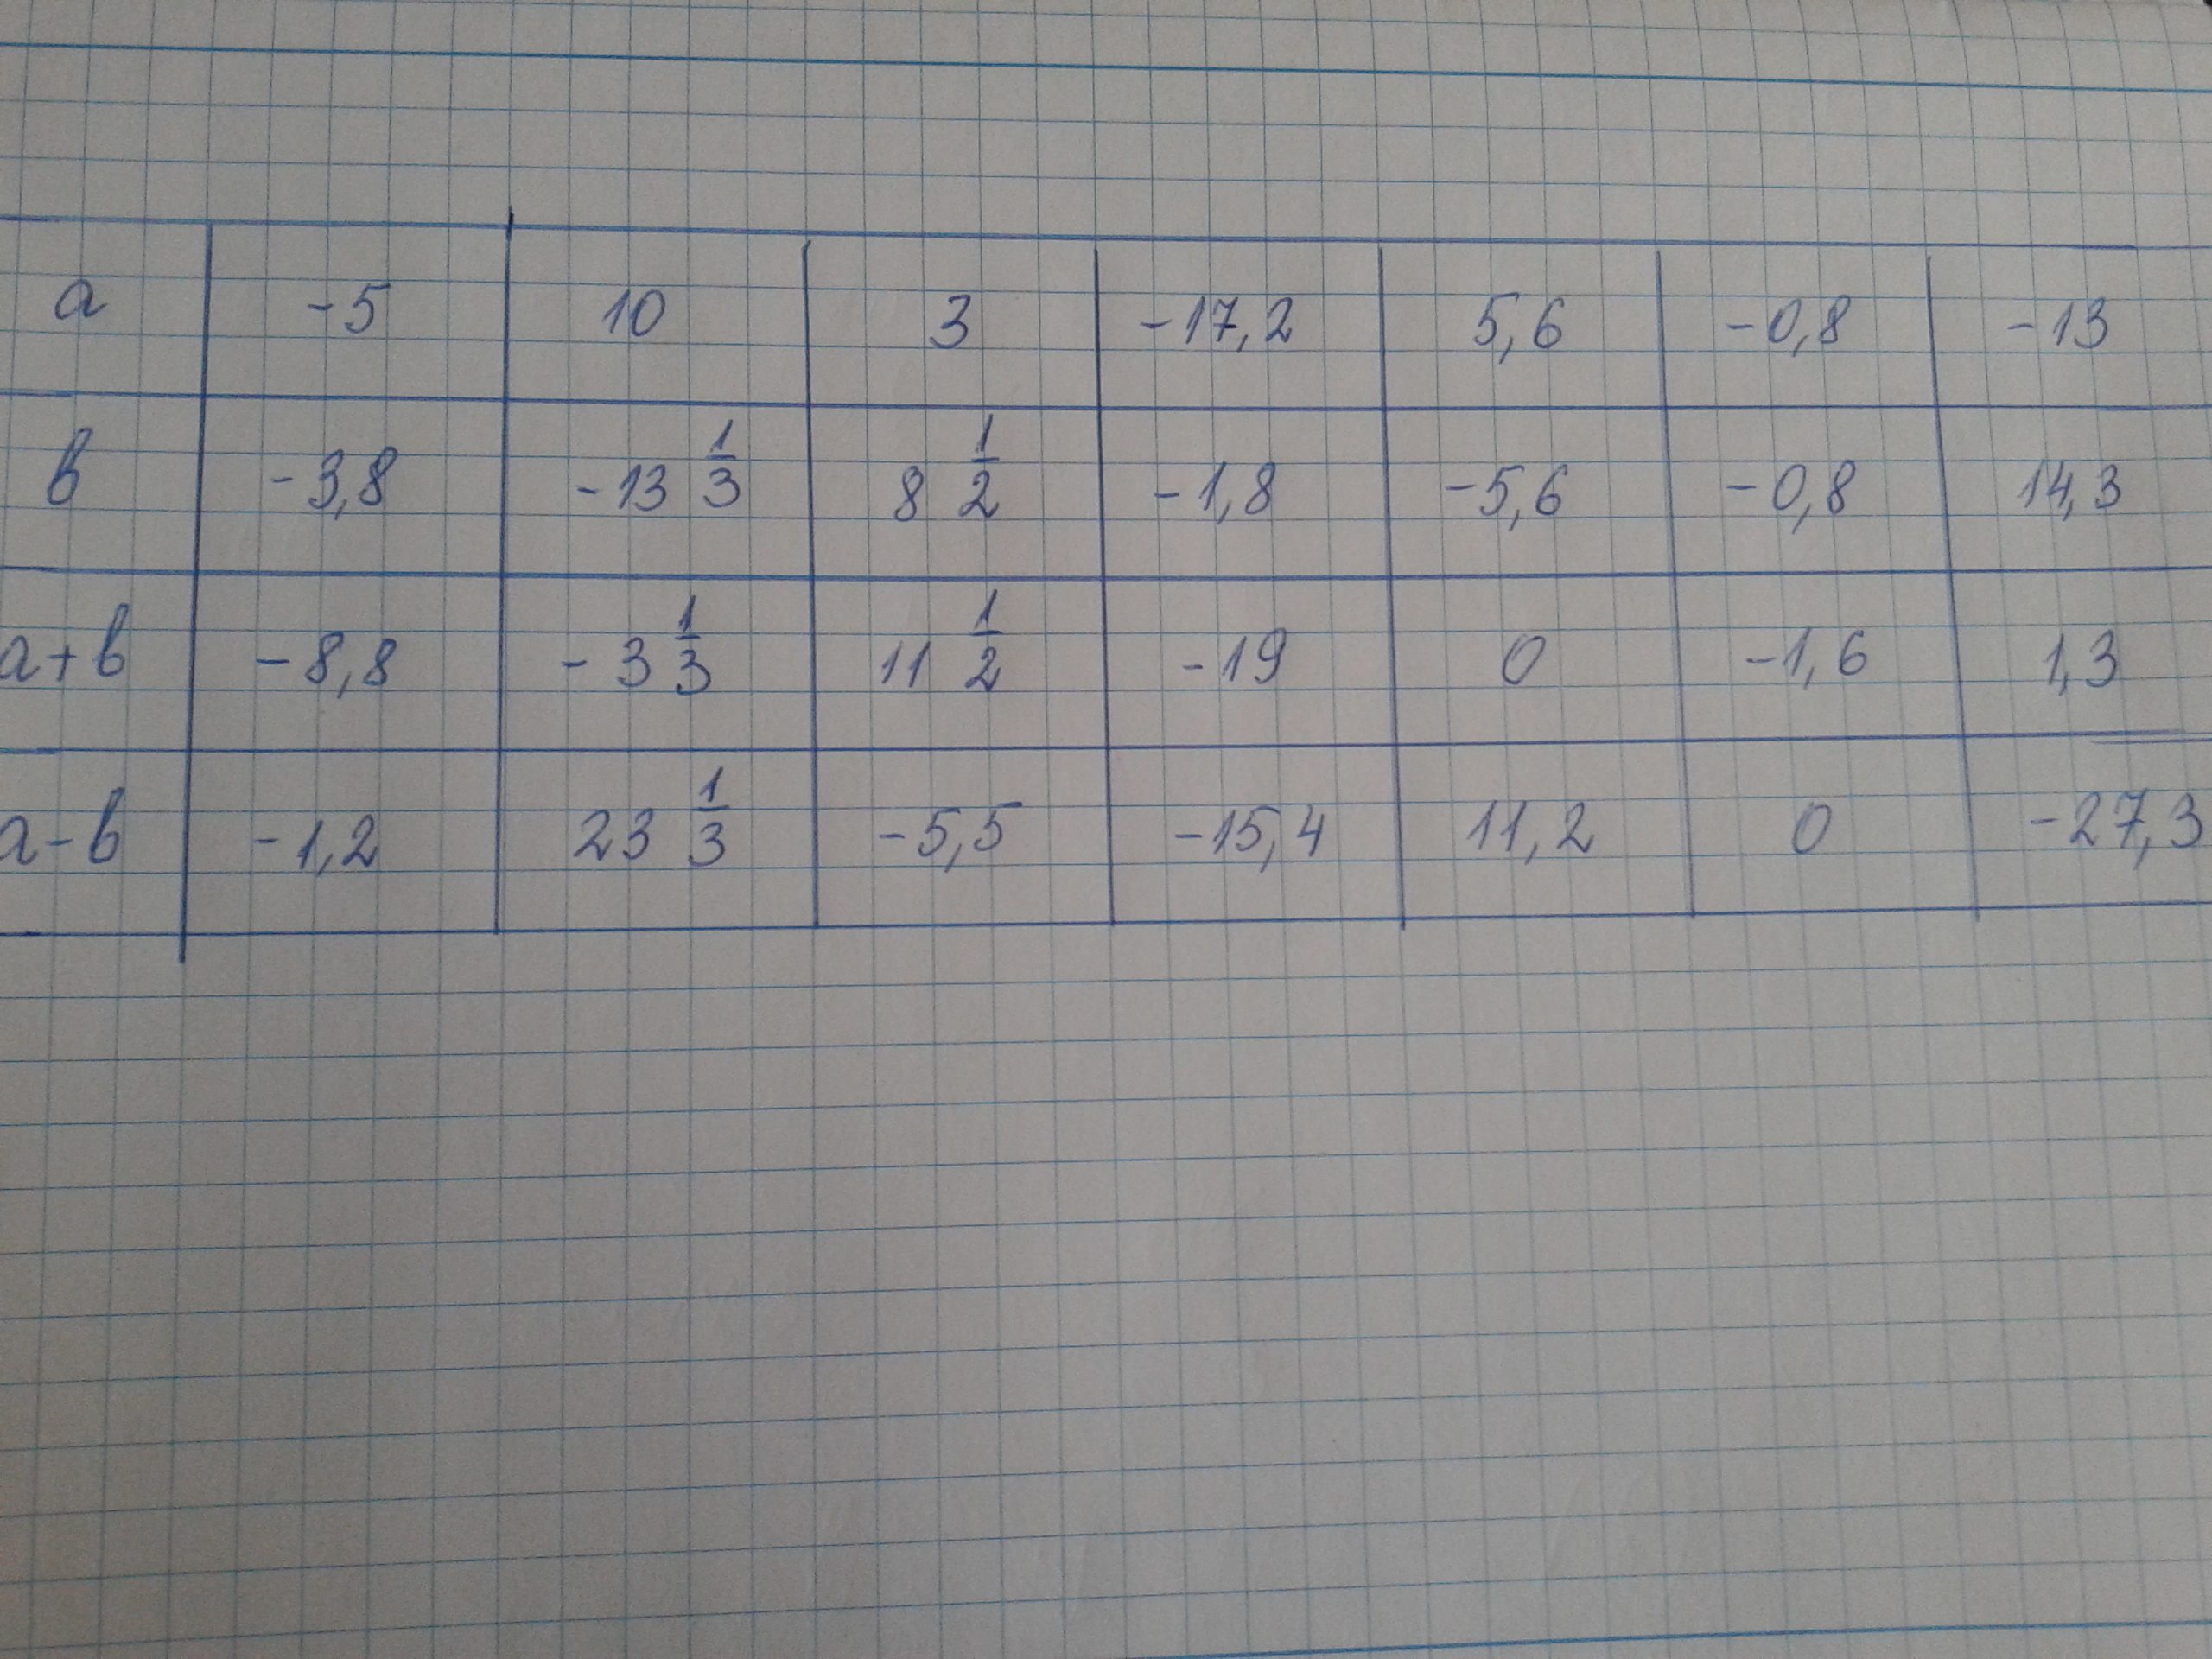 a -5 10 3 -17,2 5,6 -0,8 -13
в -3,8 -13 1/3 8 1/2 -1,8 -5,6 -0,8 14,3
a+в -8,8 -3 1/3 11 1/2 -19 0 -1,6 1,3
a-в -1,2 23 1/3 -5,5 -15,4 11,2 0 -27,3